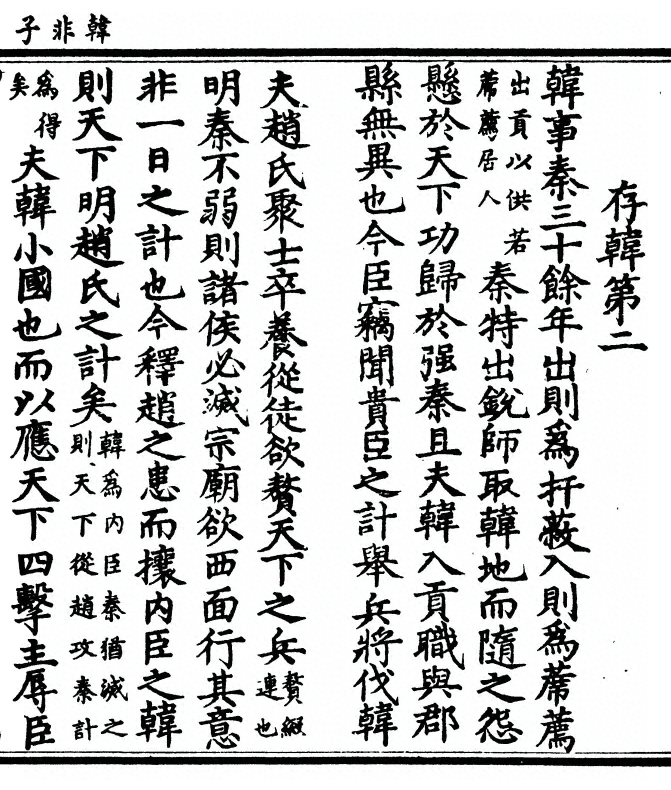 韓非子
存韓第二
韓事秦三十餘年出則爲扞蔽入則爲蓆薦
出貢以供若蓆薦居人秦特出銳師取韓地而隨之怨
懸於天下功歸於强秦且夫韓入貢職與郡
縣無異也今臣竊聞貴臣之計舉兵將伐韓
夫趙氏聚士卒養從徒欲贅天下之兵贅綴連也
明秦不弱則諸侯必滅宗廟欲西面行其意
非一日之計也今釋趙之患而攘内臣之韓
則天下明趙氏之計矣韓爲内臣秦猶滅之則天下從趙攻秦計
爲得矣夫韓小國也而以應天下四擊主辱臣